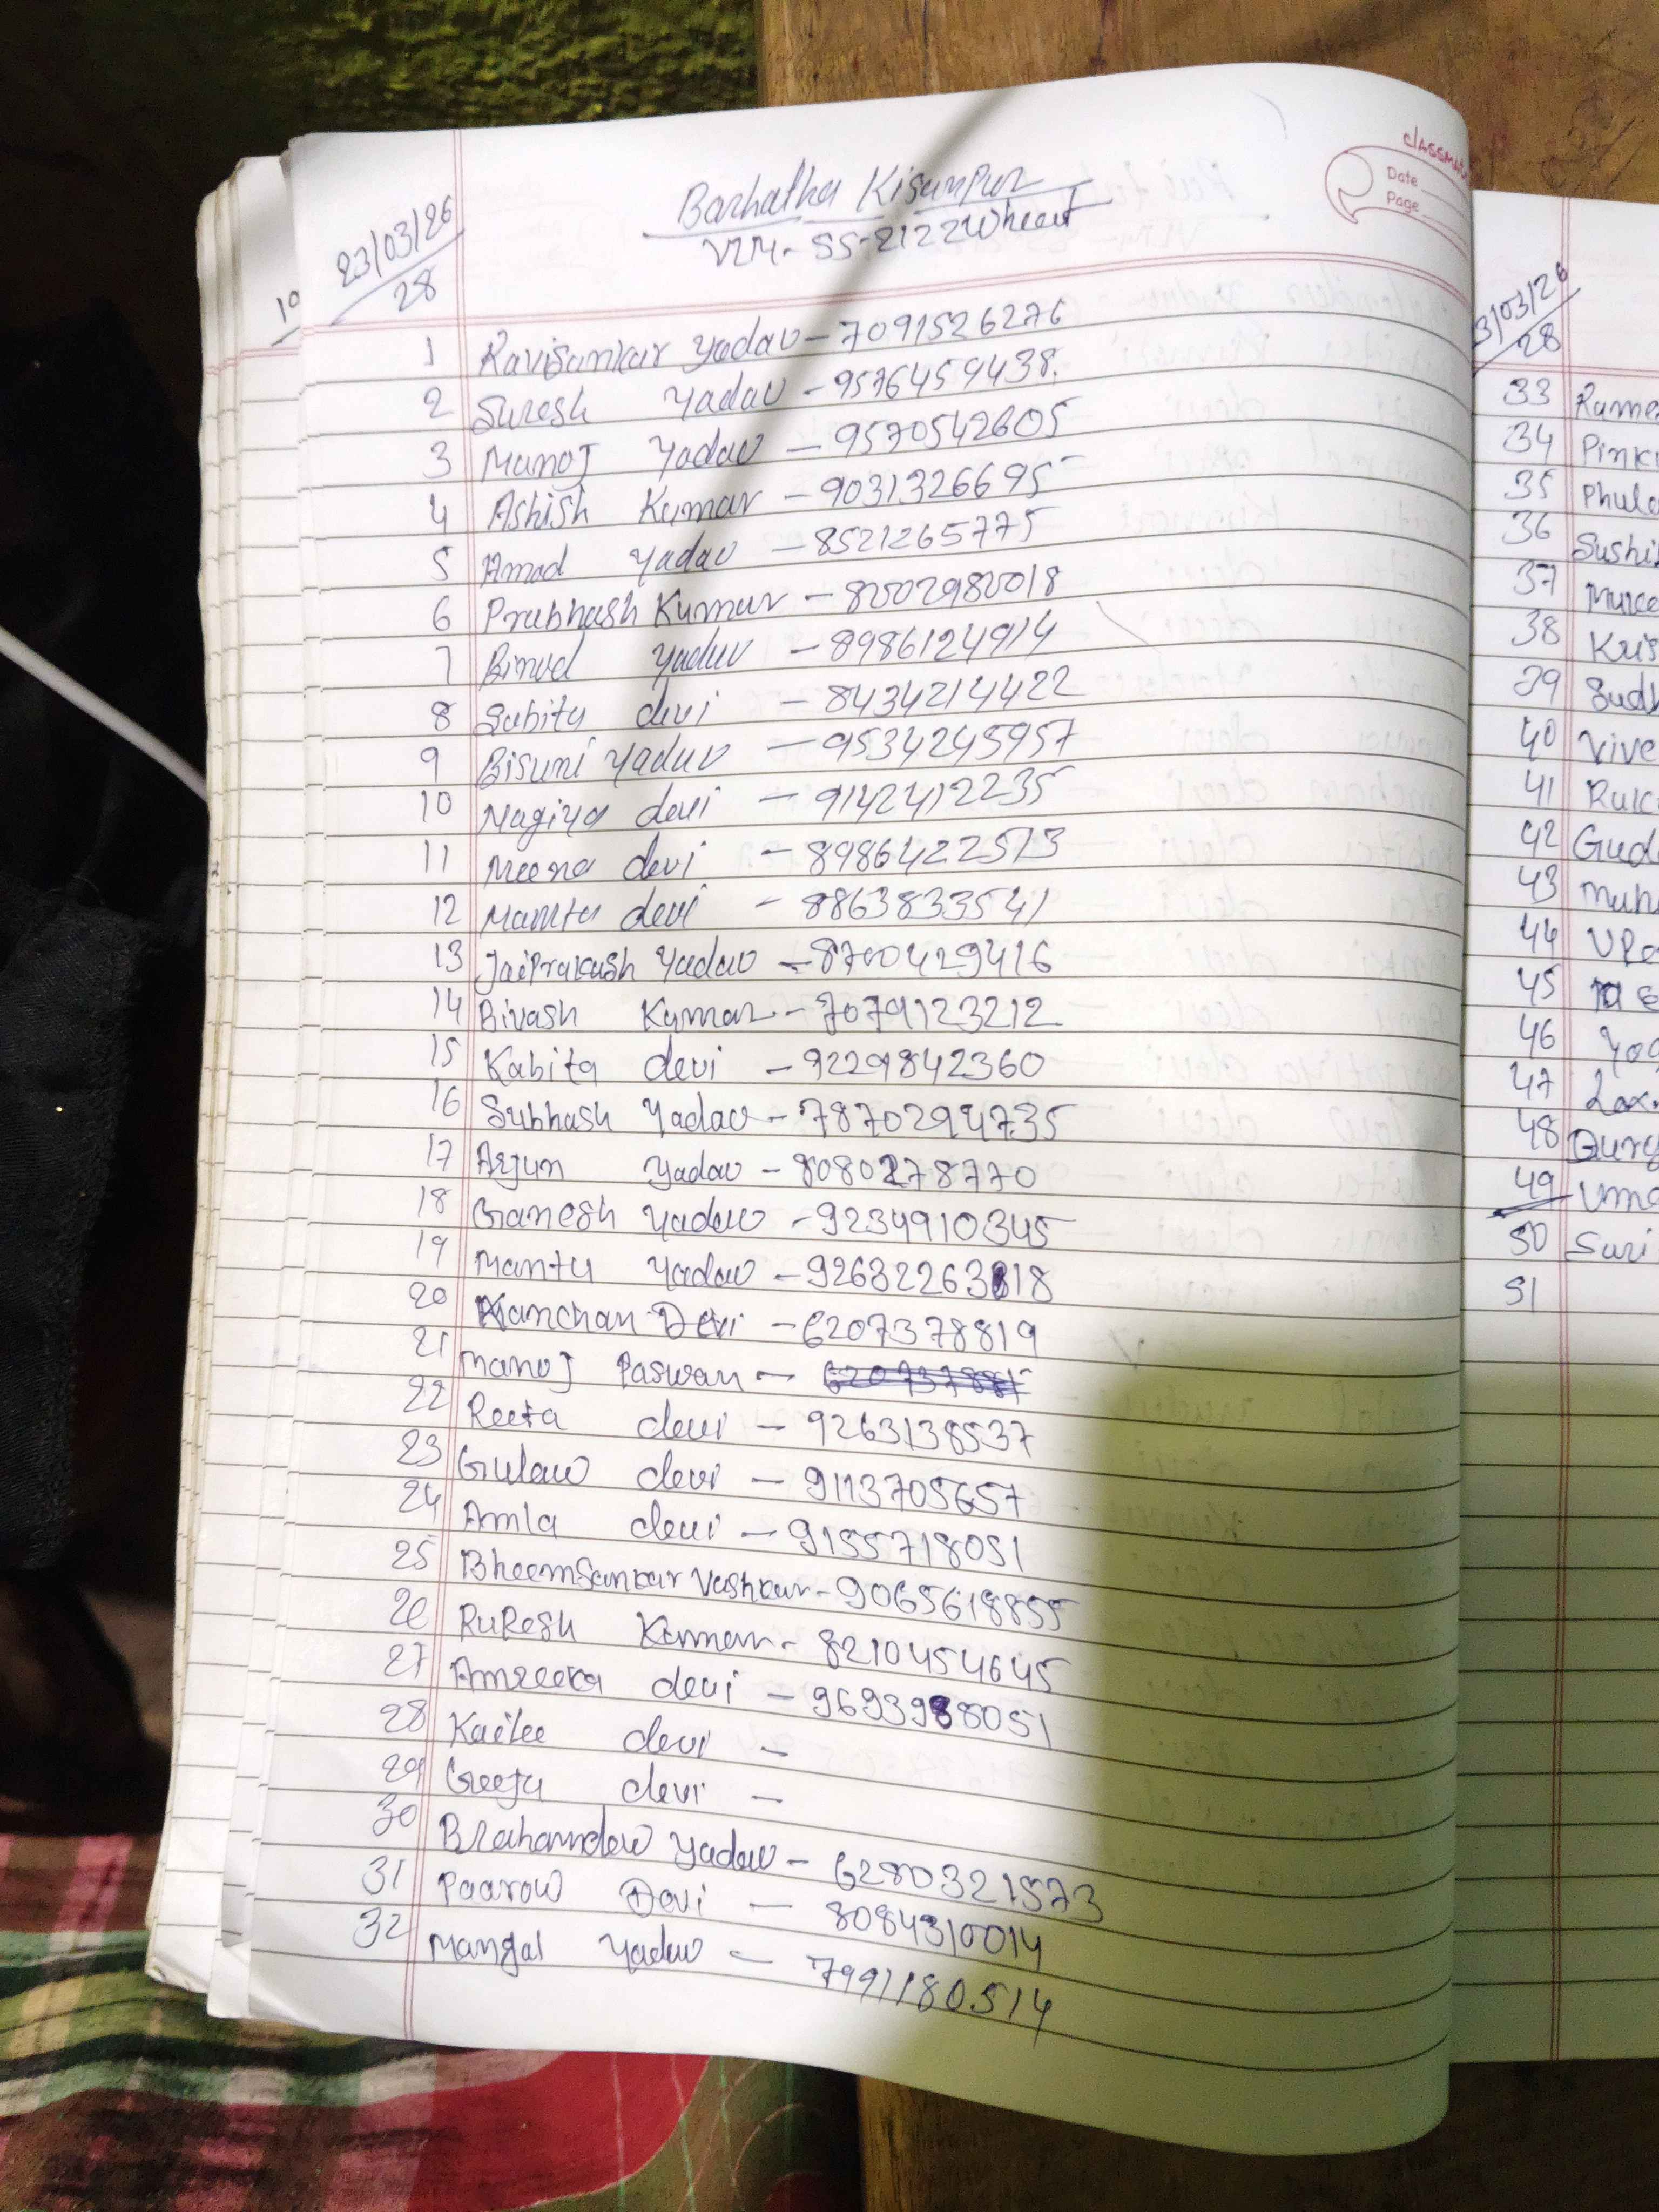 classmate
Date
Page
23/03/26
28
Barhatha Kisanpur
VLM- SS-2122 Wheat
1 Ravisankar Yadav - 7091526276
2 Suresh Yadav - 9576459438
3 Manoj Yadav - 9570542605
4 Ashish Kumar - 9031326695
5 Amod Yadav - 8521265775
6 Prabhash Kumar - 82002980018
7 Binod Yadav - 8986124914
8 Sabita devi - 8434214422
9 Bisuni Yadav - 9534245957
10 Nagiya devi - 9142412235
11 Meena devi - 8986422513
12 Mamta devi - 8863833541
13 JaiPrakash Yadav - 8700429416
14 Bivash Kumar - 7079123212
15 Kabita devi - 9229842360
16 Subhash Yadav - 7870294735
17 Arjun Yadav - 8080278770
18 Ganesh Yadav - 9234910345
19 Mantu Yadav - 9263226318
20 Kanchan Devi - 6207378819
21 Manoj Paswan -
22 Reeta devi - 9263138537
23 Gulaw devi - 9113705657
24 Amla devi - 9155718051
25 Bheemsankar - 9065618855
26 RuPesh Kumar - 8210454645
27 Amreeka devi - 9693988051
28 devi -
29 Geeta devi -
30 Brahamdew Yadaw - 6280321573
31 Paarow Devi - 8084310014
32 Mangal Yadaw - 7991180514
3/03/26
28
33
34
35
36
37
38
39
40
41
42
43
44
45
46
47
48
49
50
51